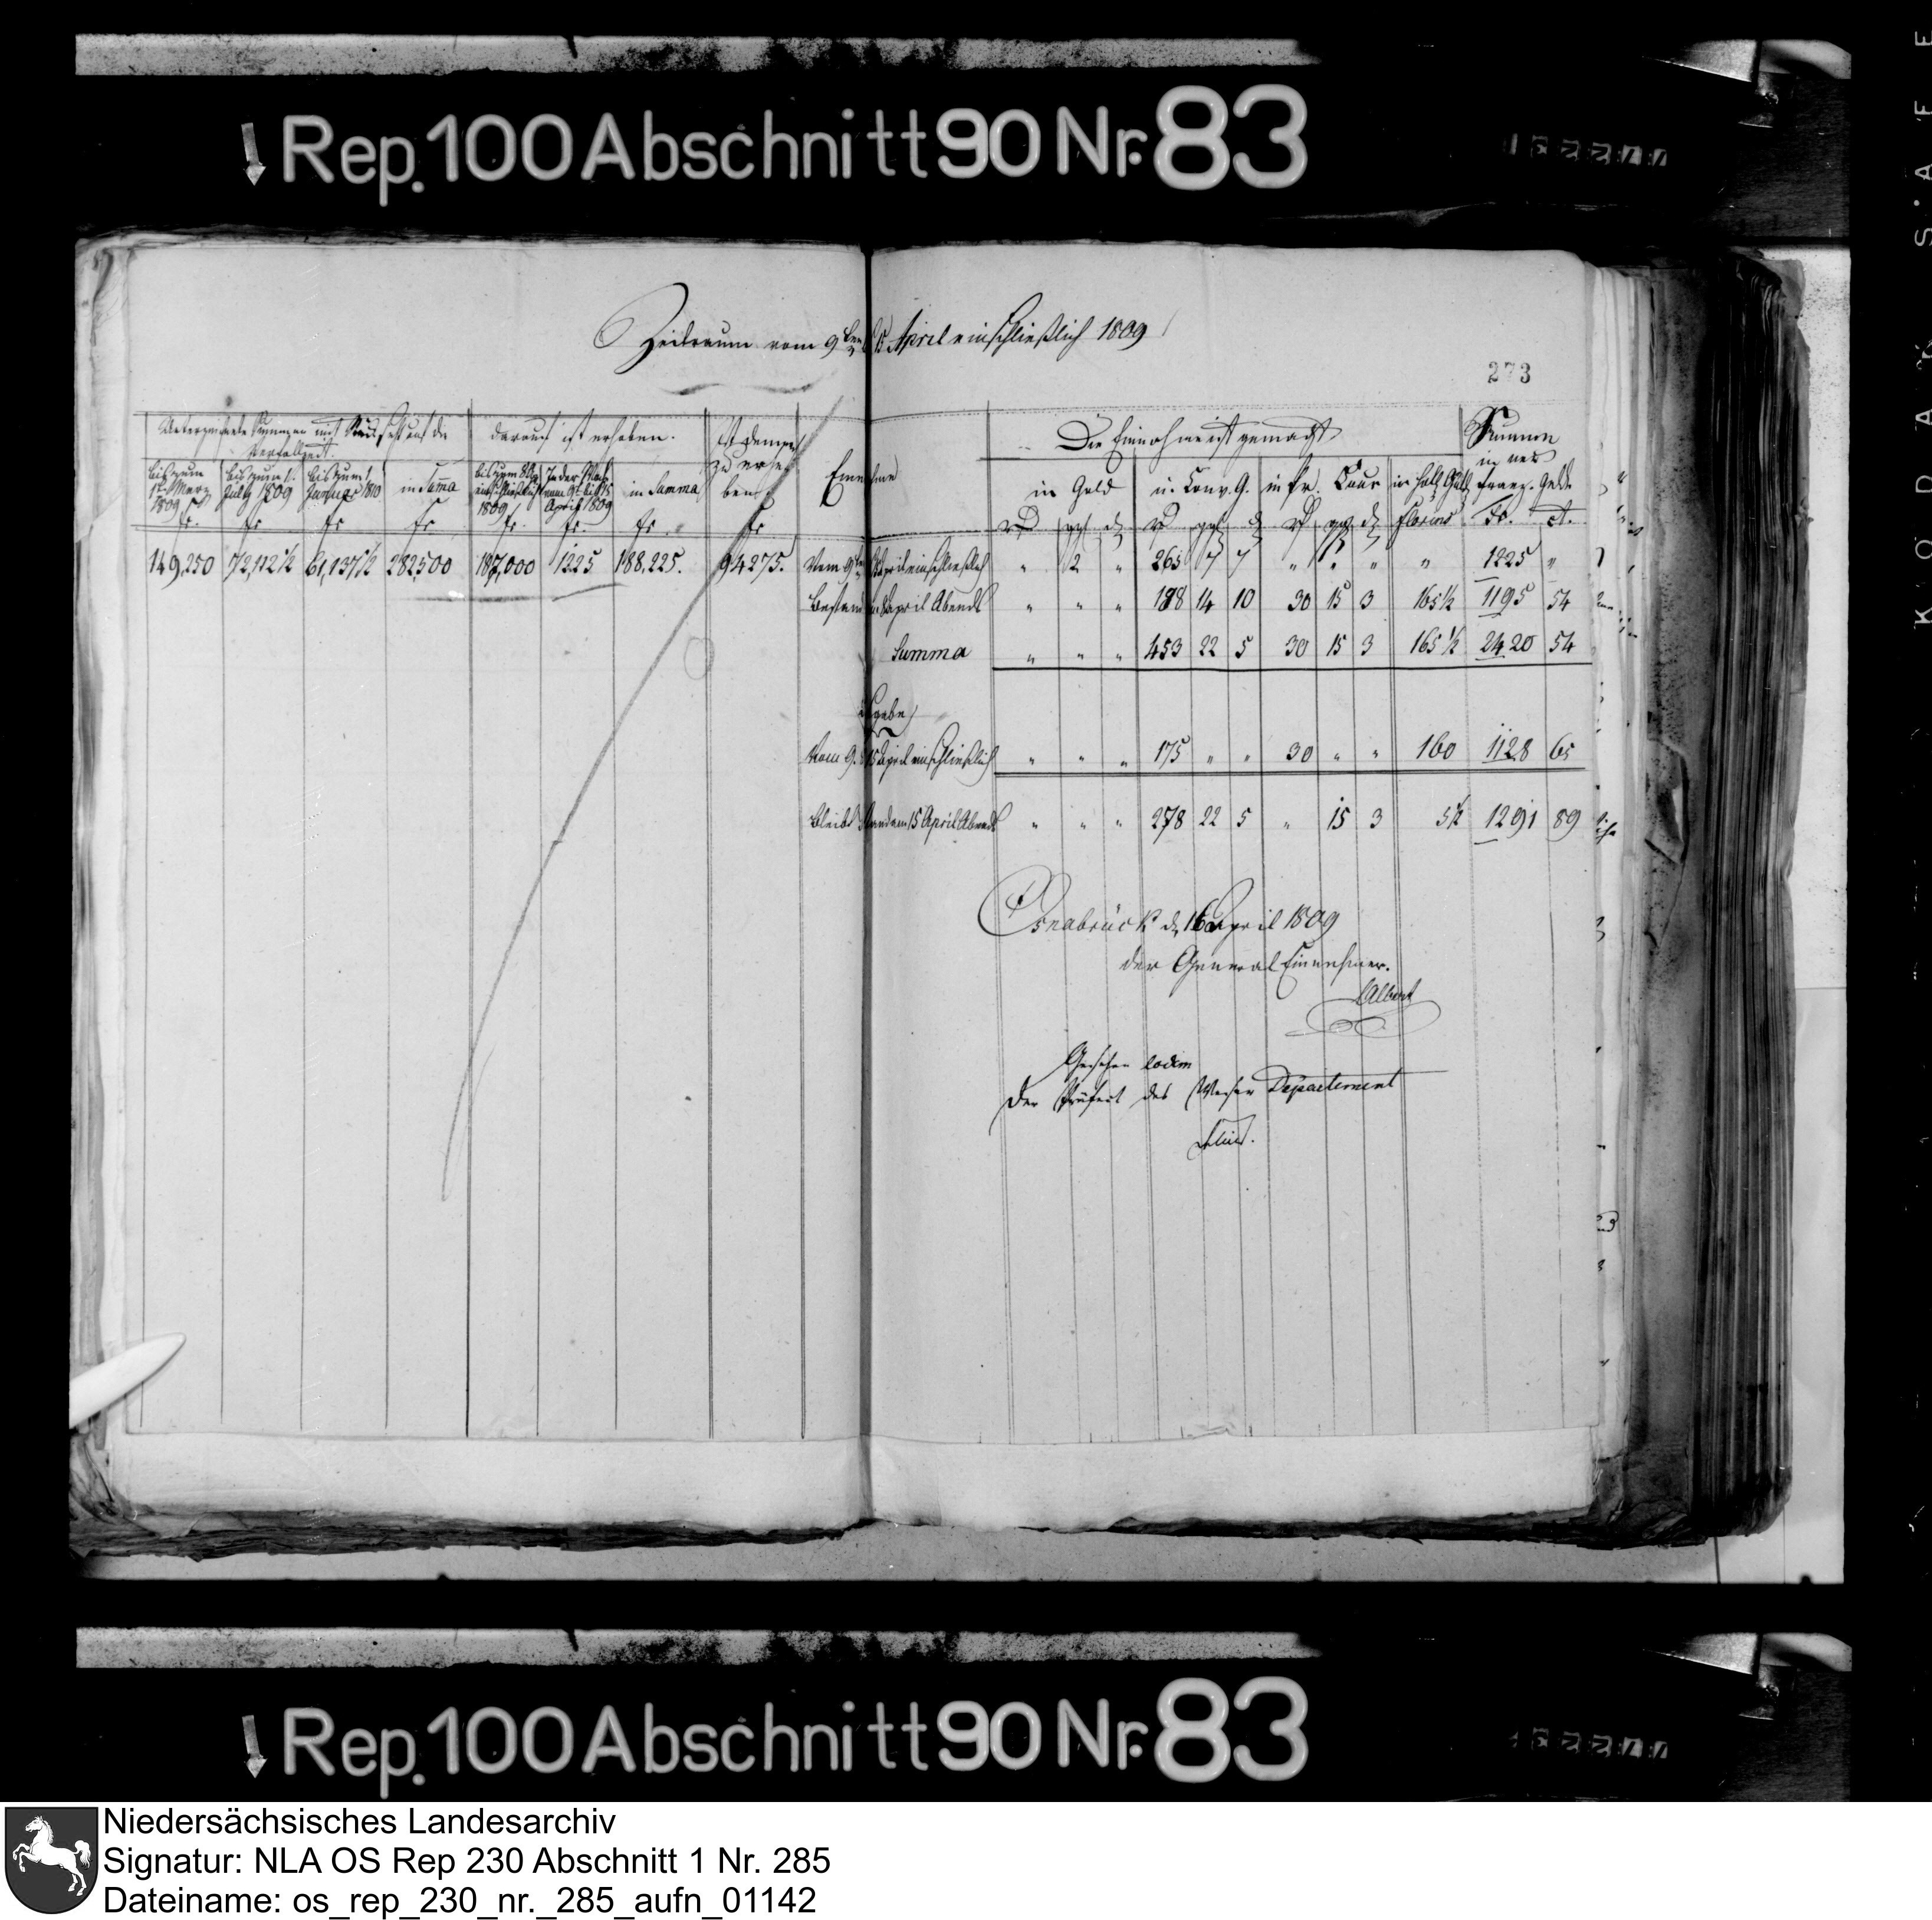 Rep. 100 Abschnitt 90 Nr. 83
Zeitraum vom 9ten 15 April einschließlich 1809
273
Unterzeichnete Summen mit Rücksicht auf die
Verfallzeit.
darauf ist erhoben.
Ist demnach
zu erhe
ben
Einnahme
Die Einnahme ist gemacht
Summen
in neu
franz. Gelde
bis zum
1t März
1809
fr.
bis zum 1.
July 1809
fr
bis zum 1
Januar 1810
fr
in Sa̅ma
fr
bis zum 8 Ap
einschließlich
1809
fr.
In der Woche
vom 9t. bis 15
April 1809
fr.
in Samma
fr.
fr
in Gold
in Conv. G.
in pr. Cour
in holl. Geld
florins
Fr.
ct.
149,250 72,112½ 61,137½ 282500 187,000 1225 188,225. 94275.
Vom 9ten April einschließlich " 2 " 265 7 7 " " " " 1225 "
Bestand 8 April Abends " " " 188 14 10 30 15 3 165½ 1195 54
Summa " " " 453 22 5 30 15 3 165½ 2420 54
Ausgabe
Vom 9. 15 April einschließlich " " " 175 " " 30 " " 160 1128 65
Bleibt Bestand am 15 April Abends " " " 278 22 5 " 15 3 5½ 1291 89
Osnabrück d 16 April 1809
der General Einnehmer.
Albert
Gesehen eodem
Der Präfect des Weser Departement
Rep. 100 Abschnitt 90 Nr. 83
Niedersächsisches Landesarchiv
Signatur: NLA OS Rep 230 Abschnitt 1 Nr. 285
Dateiname: os_rep_230_nr._285_aufn_01142